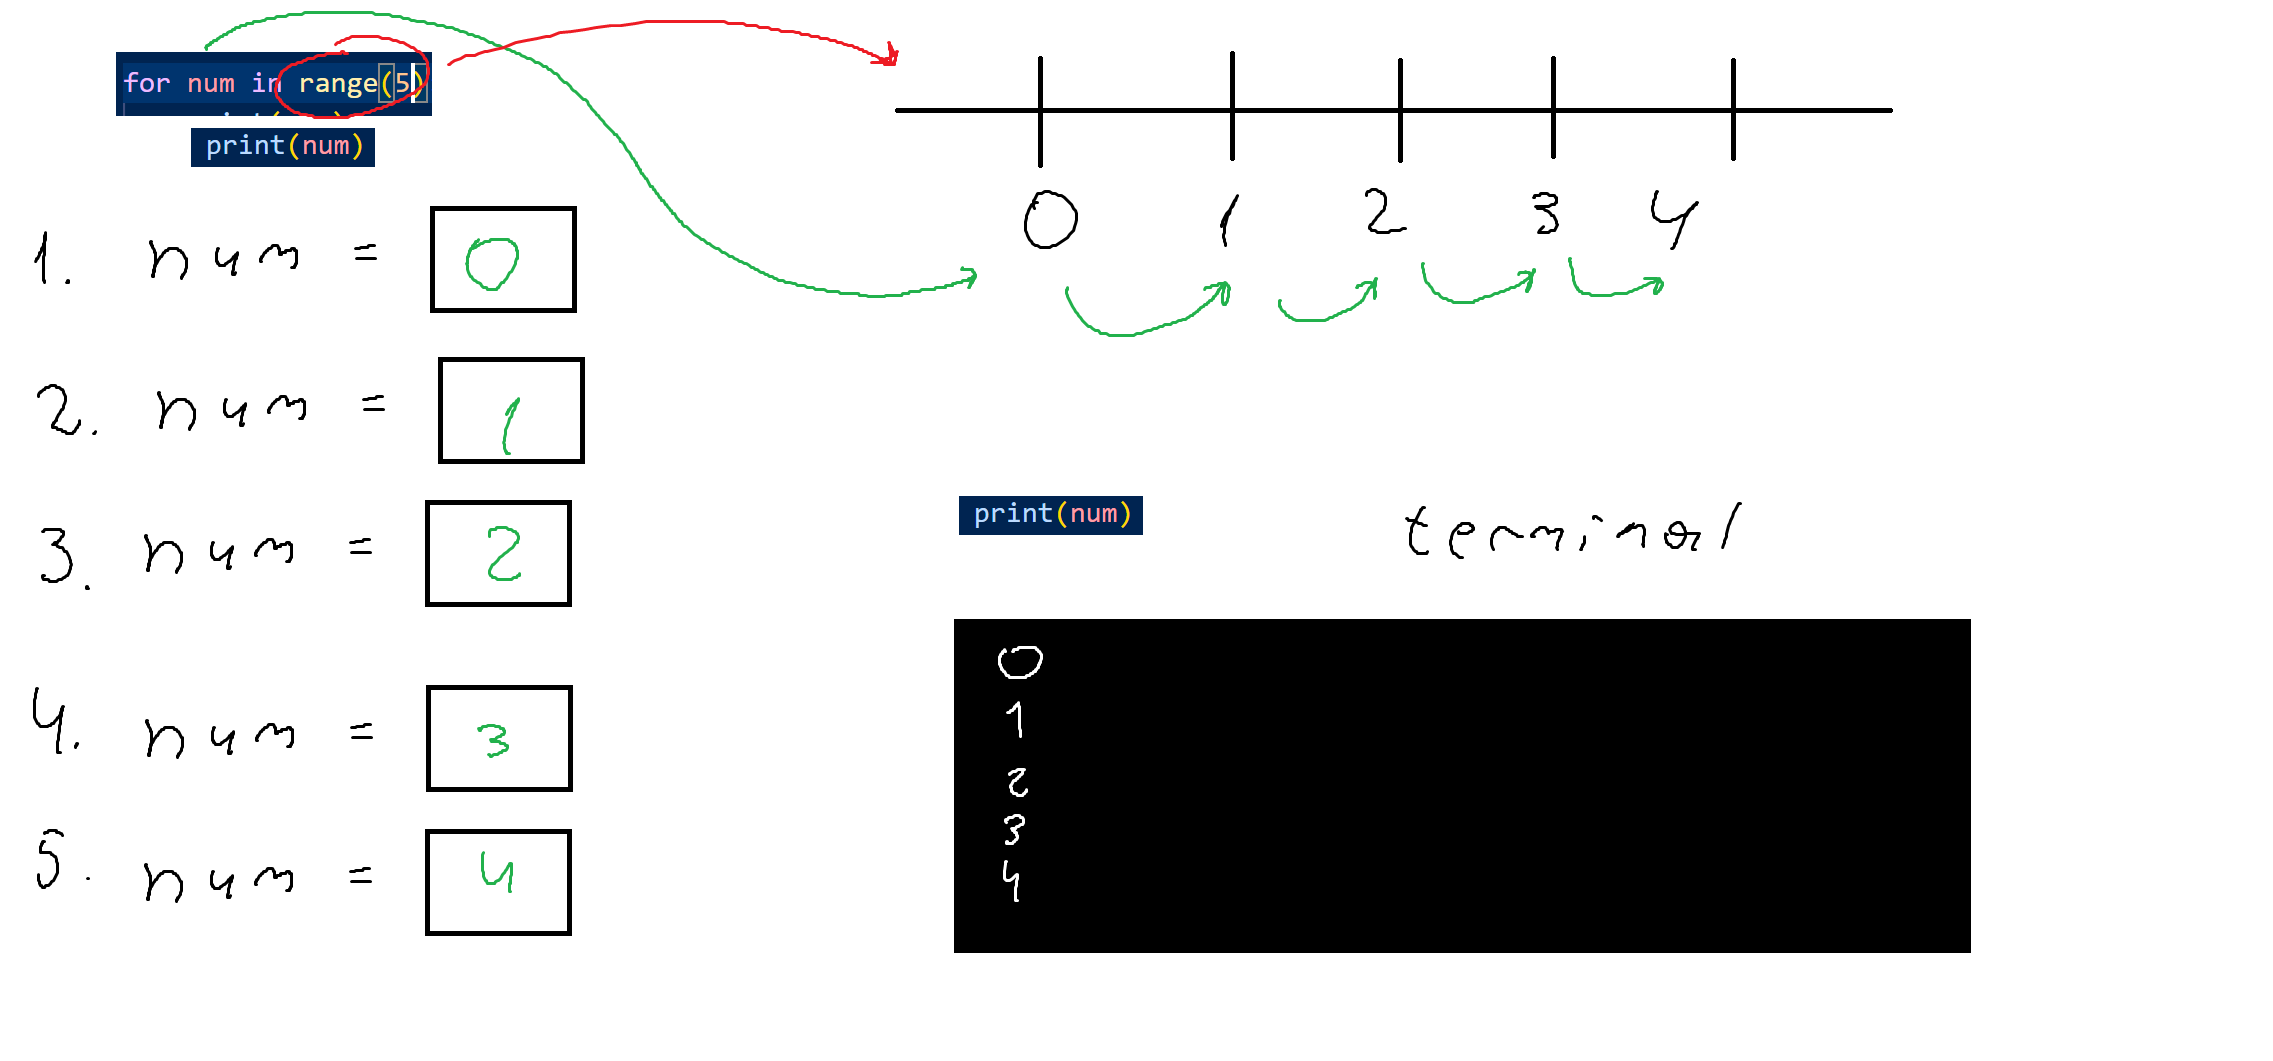 for num in range(5)
print(num)
0 1 2 3 4
1. num = 0
2. num = 1
3. num = 2
4. num = 3
5. num = 4
print(num)
terminal
0
1
2
3
4